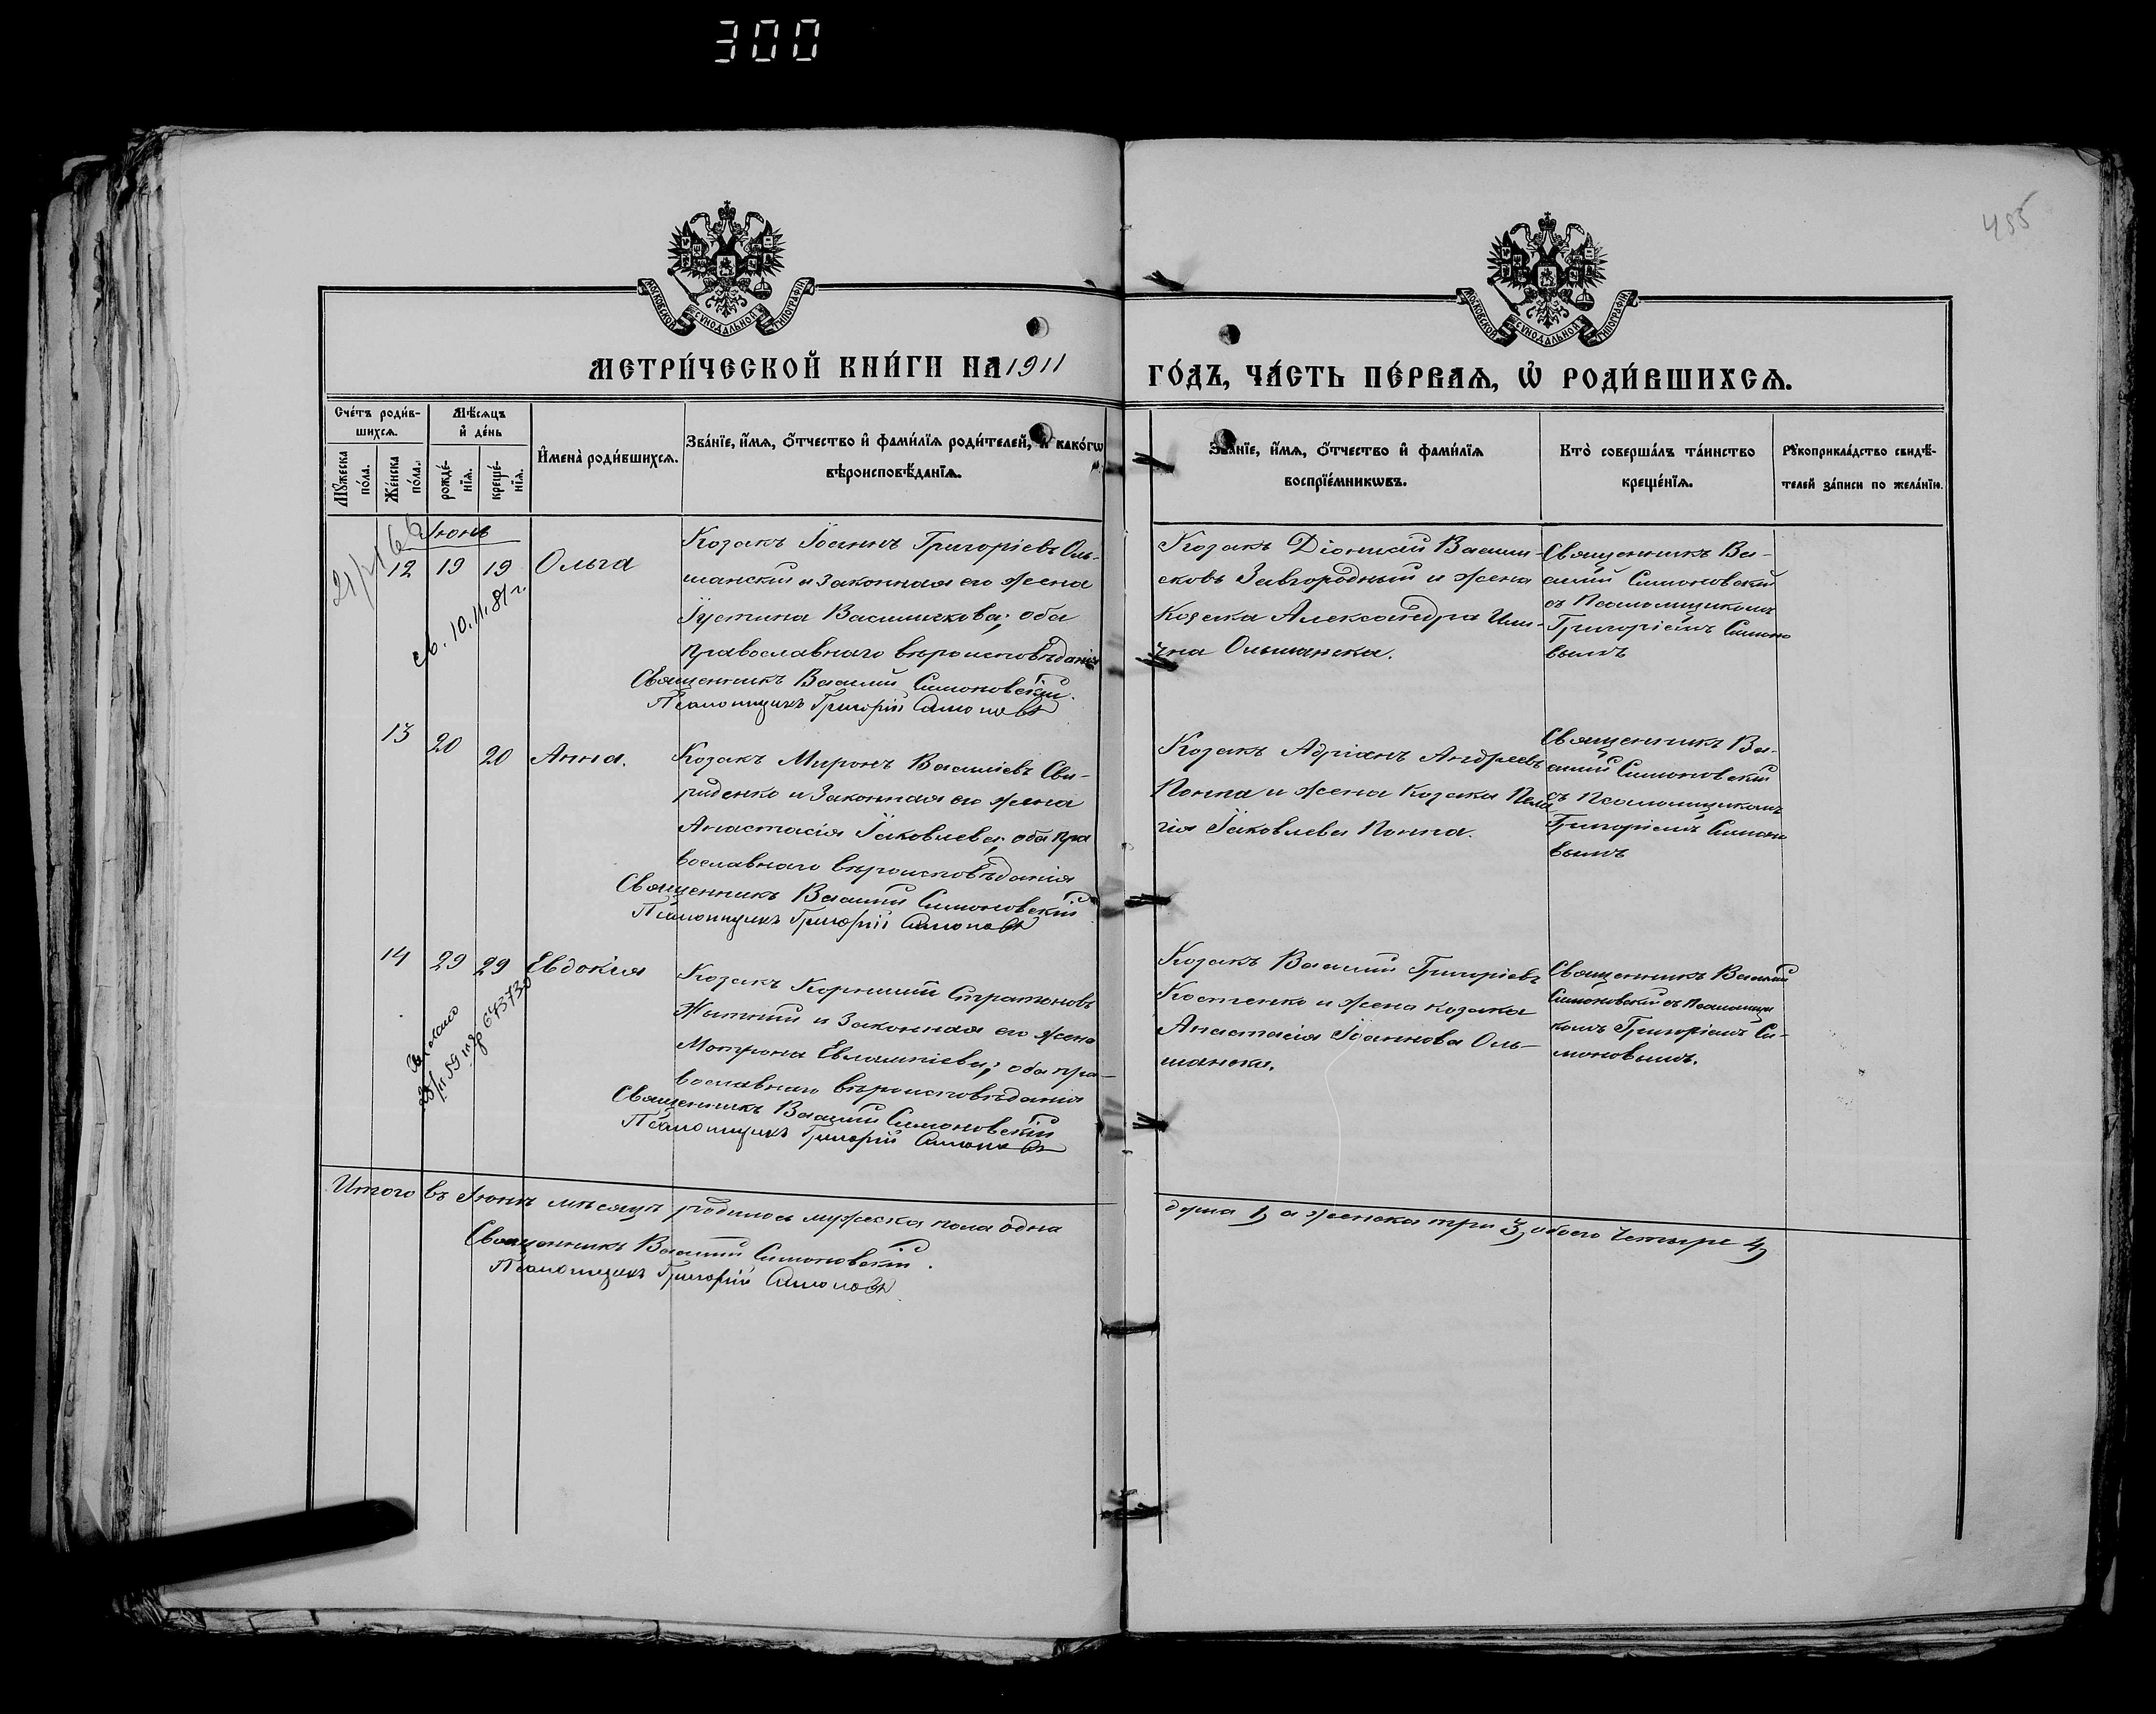 300
455
МОСКОВСКОЙ СѴНОДАЛЬНОЙ ТИПОГРАФІИ
МОСКОВСКОЙ СѴНОДАЛЬНОЙ ТИПОГРАФІИ
МЕТРИ́ЧЕСКОЙ КНИ́ГИ НА 1911
ГО́ДЪ, ЧА́СТЬ ПЕ́РВАѦ, Ѽ РОДИ́ВШИХСѦ.
Сче́тъ роди́в-
шихсѧ.
Мѣ́сѧцъ
и҆ де́нь
Мꙋ́жеска
по́ла.
Же́нска
по́ла.
рожде́-
нїѧ.
креще́-
нїѧ.
И҆мена̀ роди́вшихсѧ.
Зва́нїе, и҆́мѧ, ѻ҆́тчество и҆ фами́лїѧ роди́телей, и҆ како́гѡ
вѣроисповѣ́данїѧ.
Зва́нїе, и҆́мѧ, ѻ҆́тчество и҆ фами́лїѧ
воспрїе́мникѡвъ.
Кто̀ соверша́лъ та́инство
креще́нїѧ.
Рꙋкоприкла́дство свидѣ́-
телей за́писи по жела́нїю.
Іюнь
12 19 19 Ольга
св. 10.11.81 г.
Козакъ Іоаннъ Григоріевъ Оль-
шанскій и законная его жена
Іустина Василискова; оба
православнаго вѣроисповѣданія
Священникъ Василій Симоновскій.
Псаломщикъ Григорій Симоновъ
Козакъ Діонисій Васили-
сковъ Завгородный и жена
Козака Александра Или-
чна Ольшанска.
Священникъ Ва-
силій Симоновскій
съ Псаломщикомъ
Григоріемъ Симоно
вымъ
13 20 20 Анна.
Козакъ Миронъ Василіевъ Сви-
риденко и законная его жена
Анастасія Іаковлева; оба пра
вославнаго вѣроисповѣданія
Священникъ Василій Симоновскій
Псаломщикъ Григорій Симоновъ
Козакъ Адріанъ Андреевъ
Попна и жена Козака Пела
гія Іаковлева Попна.
Священникъ Ва-
силій Симоновскій
съ Псаломщикомъ
Григоріемъ Симоно
вымъ
14 29 29 Евдокія
Козакъ Корнилій Стратоновъ
Жытній и законная его жена
Мотрона Евлампіева; оба пра-
вославнаго вѣроисповѣданія
Священникъ Василій Симоновскій
Псаломщикъ Григорій Симоновъ
Козакъ Василій Григоріевъ
Костенко и жена козака
Анастасія Іоаннова Оль-
шанска.
Священникъ Василій
Симоновскій съ Псаломщи
комъ Григоріемъ Си-
моновымъ.
Итого въ Іюнѣ мѣсяцѣ родилось мужеска пола одна
душа 1, а женска три 3, обоего четыре 4,
Священникъ Василій Симоновскій.
Псаломщикъ Григорій Симоновъ